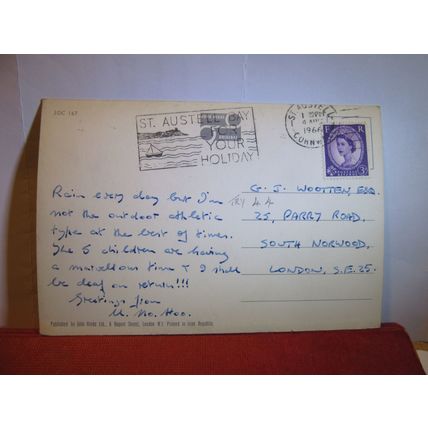 JOC 167
ST. AUSTELL BAY
FOR
YOUR
HOLIDAY
ST. AUSTELL
1
4
1966
CORNWALL
E R
3D
Rain every day but I'm
not the outdoor athletic
type at the best of times.
The 6 children are having
a marvellous time & I shall
be deaf on return!!!
Greetings from
TRY 44
G. J. WOOTTEN, ESQ.
25, PARRY ROAD,
SOUTH NORWOOD,
LONDON, S.E.25.
Published by John Hinde Ltd., 6 Regent Street, London W.1. Printed in Irish Republic.